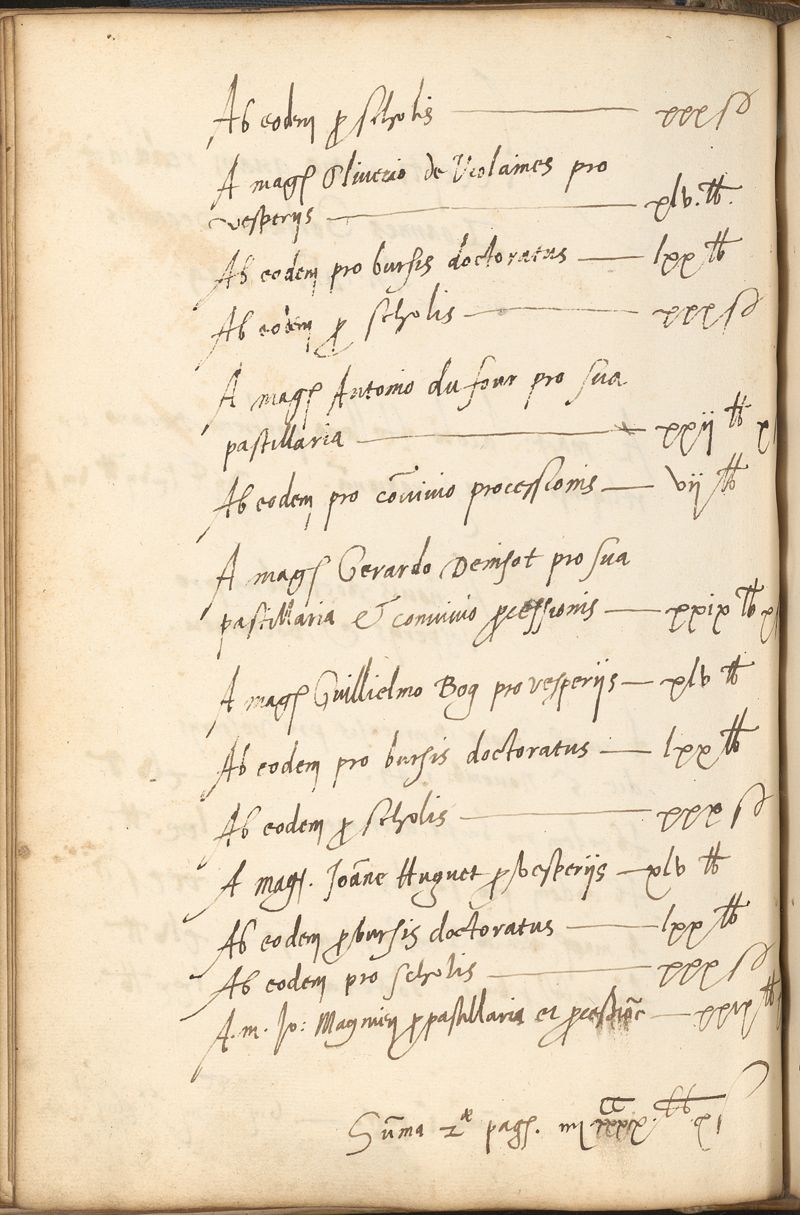 Ab eodem ꝓ scholis — xxx s
A magr̃ Oliverio de Violaines pro
vesperijs — xlv. ℔.
Ab eodem pro bursis doctoratus — lxx ℔
Ab eodem ꝓ scholis — xxx s
A magr̃ Antonio du four pro sua
pastillaria — xxij ℔ x
Ab eodem pro cõvivio processionis — vij ℔
A magr̃ Gerardo Denisot pro sua
pastillaria & convivio ꝓcessionis — xxix ℔ x
A magr̃ Guillielmo Bog pro vesperijs — xlv ℔
Ab eodem pro bursis doctoratus — lxx ℔
Ab eodem ꝓ scholis — xxx s
A magr̃. Joãne Huguet ꝓ vesperijs — xlv ℔
Ab eodem ꝓ bursis doctoratus — lxx ℔
Ab eodem pro scholis — xxx s
A. m. Jo: Magnien ꝓ pastillaria et ꝓcessiõe — xxix ℔
Sũma 2æ pag. iiij ℔ x s